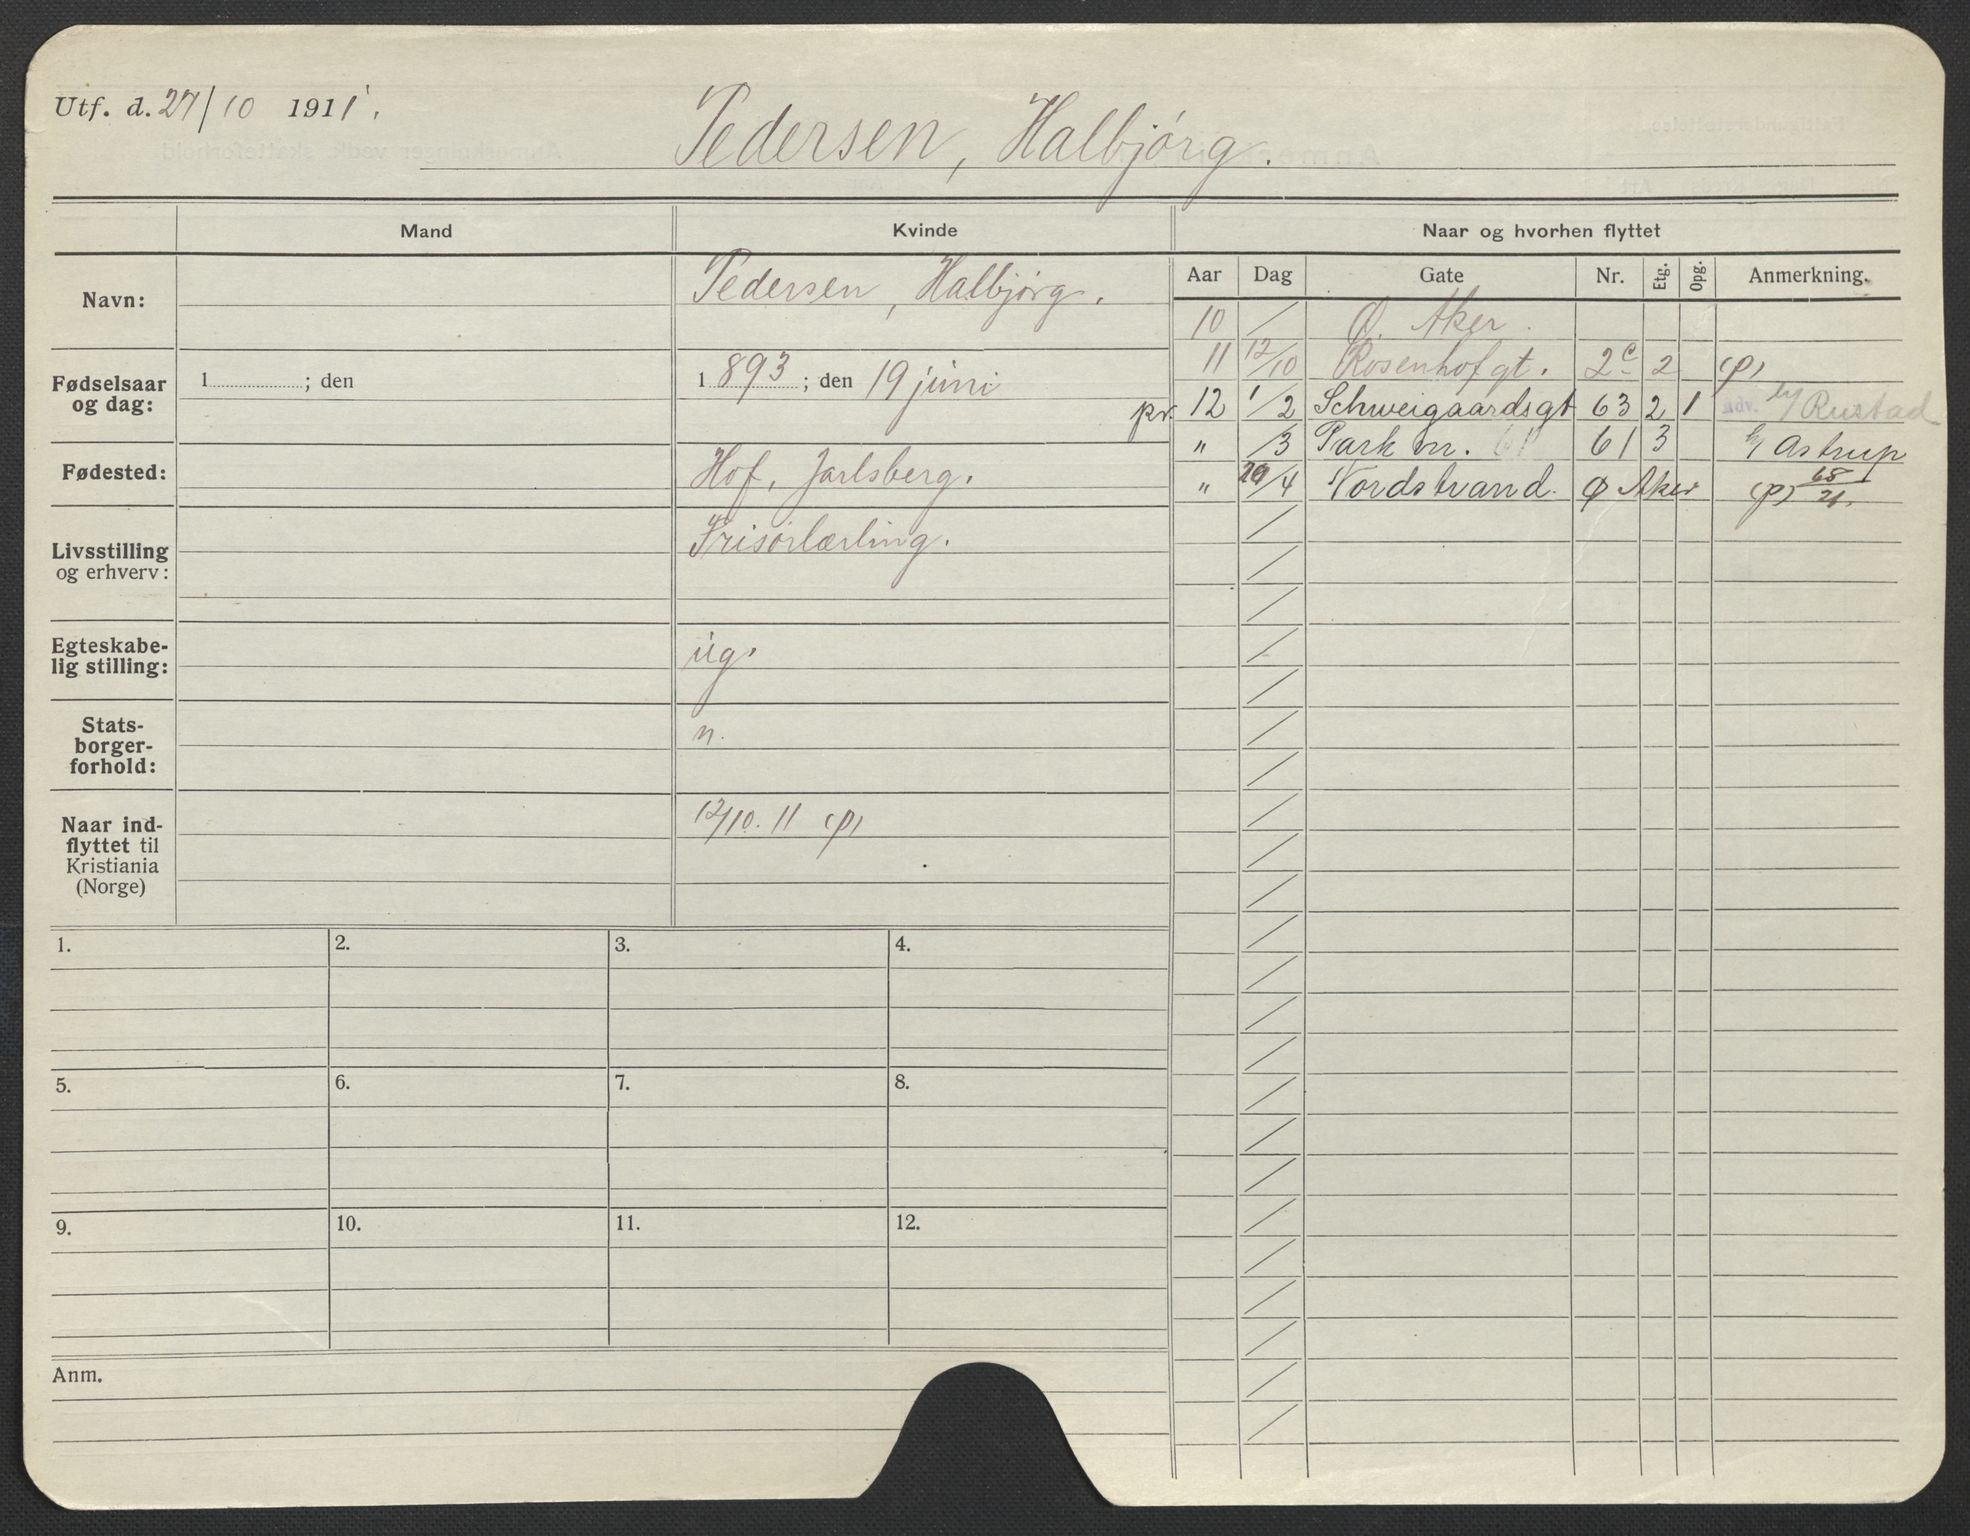 Utf. d. 27/10 1911.
Pedersen, Halbjørg.
Mand
Kvinde
Naar og hvorhen flyttet
Aar Dag Gate Nr. Etg. Opg. Anmerkning.
Navn:
Pedersen, Halbjørg.
Fødselsaar og dag:
1 ; den
1893 ; den 19 juni
Fødested:
Hof, Jarlsberg.
Livsstilling og erhverv:
Frisørlærling.
Egteskabe-
lig stilling:
ug.
Stats-
borger-
forhold:
n.
Naar ind-
flyttet til
Kristiania
(Norge)
12/10. 11 (p)
10 / Ø. Aker.
11 12/10 Rosenhofgt. 2c 2 (p)
pr. 12 1/2 Schweigaardsgt 63 2 1 Adv. b/ Rustad
" /3 Parkvn. 61 61 3 b/ Astrup
" 29/4 Nordstrand. Ø Aker (p) 68/21.
1.
2.
3.
4.
5.
6.
7.
8.
9.
10.
11.
12.
Anm.